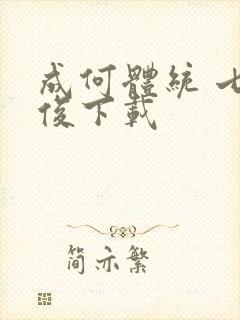 成何體統 七
俊下載
简示繁